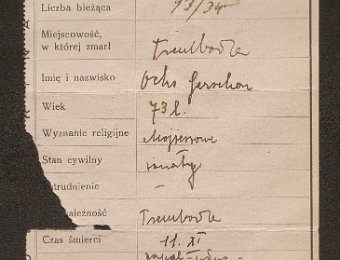 Liczba bieżąca 93/34
Miejscowość,
w której zmarł Trembowla
Imię i nazwisko Ochs Gerschon
Wiek 73 l.
Wyznanie religijne Mojżeszowe
Stan cywilny żonaty
atrudnienie —
należność Trembowla
Czas śmierci 11. XI